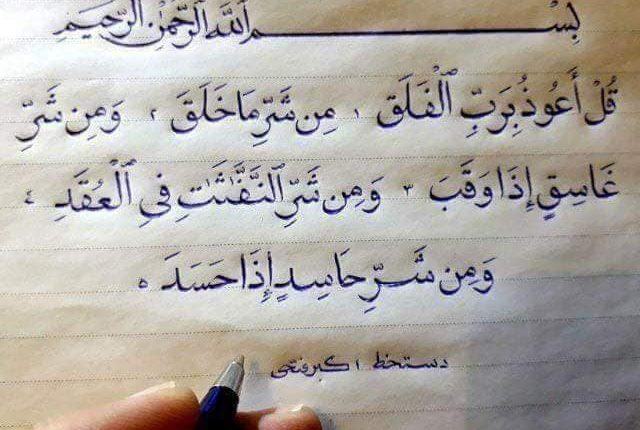 بِسْمِ اللهِ الرَّحْمٰنِ الرَّحِيْمِ
قُلْ أَعُوذُ بِرَبِّ ٱلْفَلَقِ ١ مِن شَرِّ مَا خَلَقَ ٢ وَمِن شَرِّ
غَاسِقٍ إِذَا وَقَبَ ٣ وَمِن شَرِّ ٱلنَّفَّٰثَٰتِ فِي ٱلْعُقَدِ ٤
وَمِن شَرِّ حَاسِدٍ إِذَا حَسَدَ ٥
دستخط اکبر فتحی